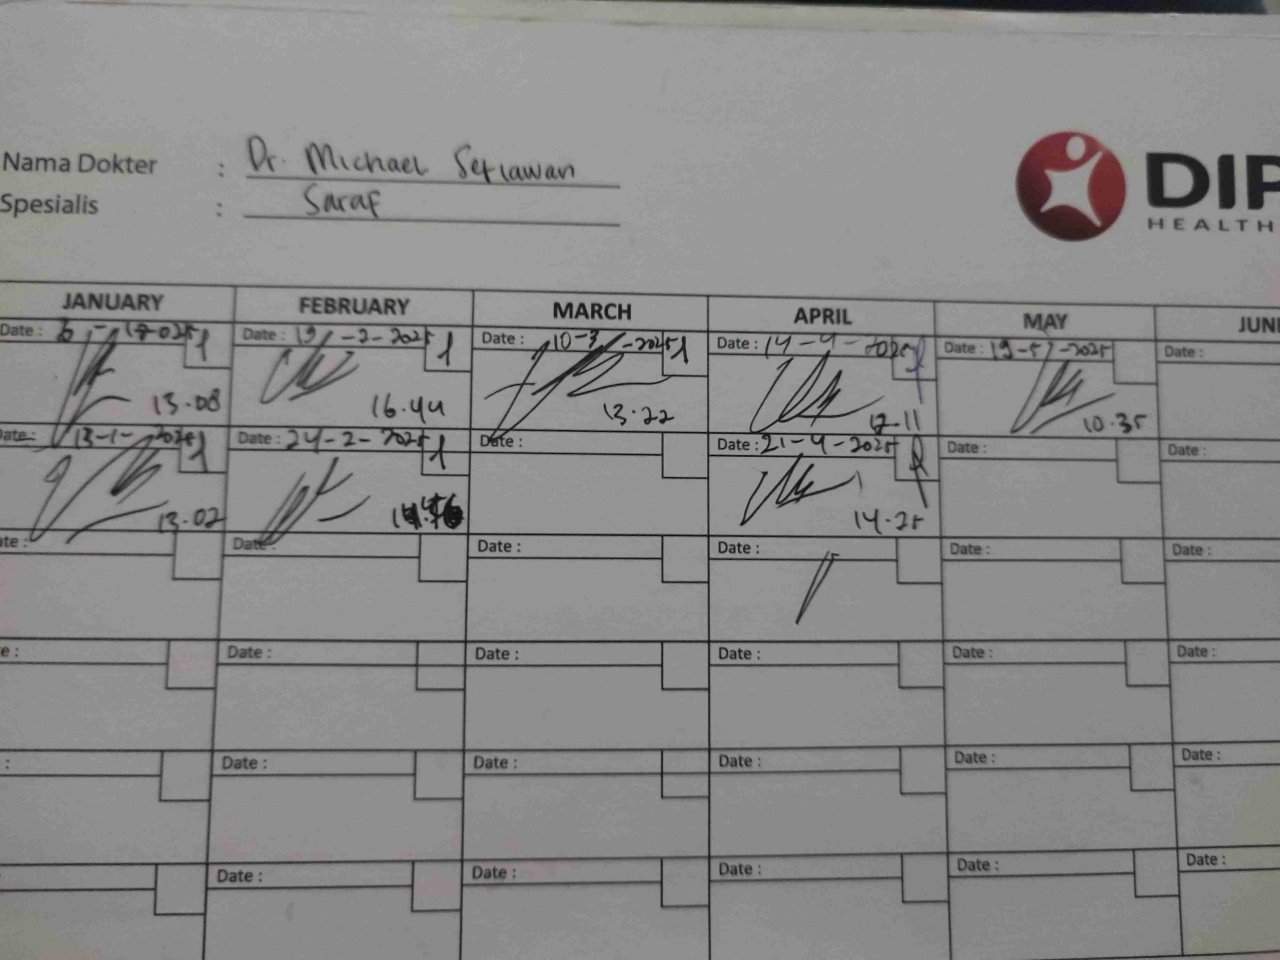 Nama Dokter : Dr. Michael Setiawan
Spesialis : Saraf
DIP
HEALTH
JANUARY FEBRUARY MARCH APRIL MAY JUN
Date : Date : 19-2-2025 Date : 10-3-2025 Date : 14-4-2025 Date : 19-5-2025 Date :
13.08 16.44 13.22 12.11 10.35
Date: 13-1-2025 Date : 24-2-2025 Date : Date : 21-4-2025 Date : Date :
13.02 14.25
te : Date : Date : Date : Date : Date :
e : Date : Date : Date : Date : Date :
: Date : Date : Date : Date : Date :
Date : Date : Date : Date : Date :